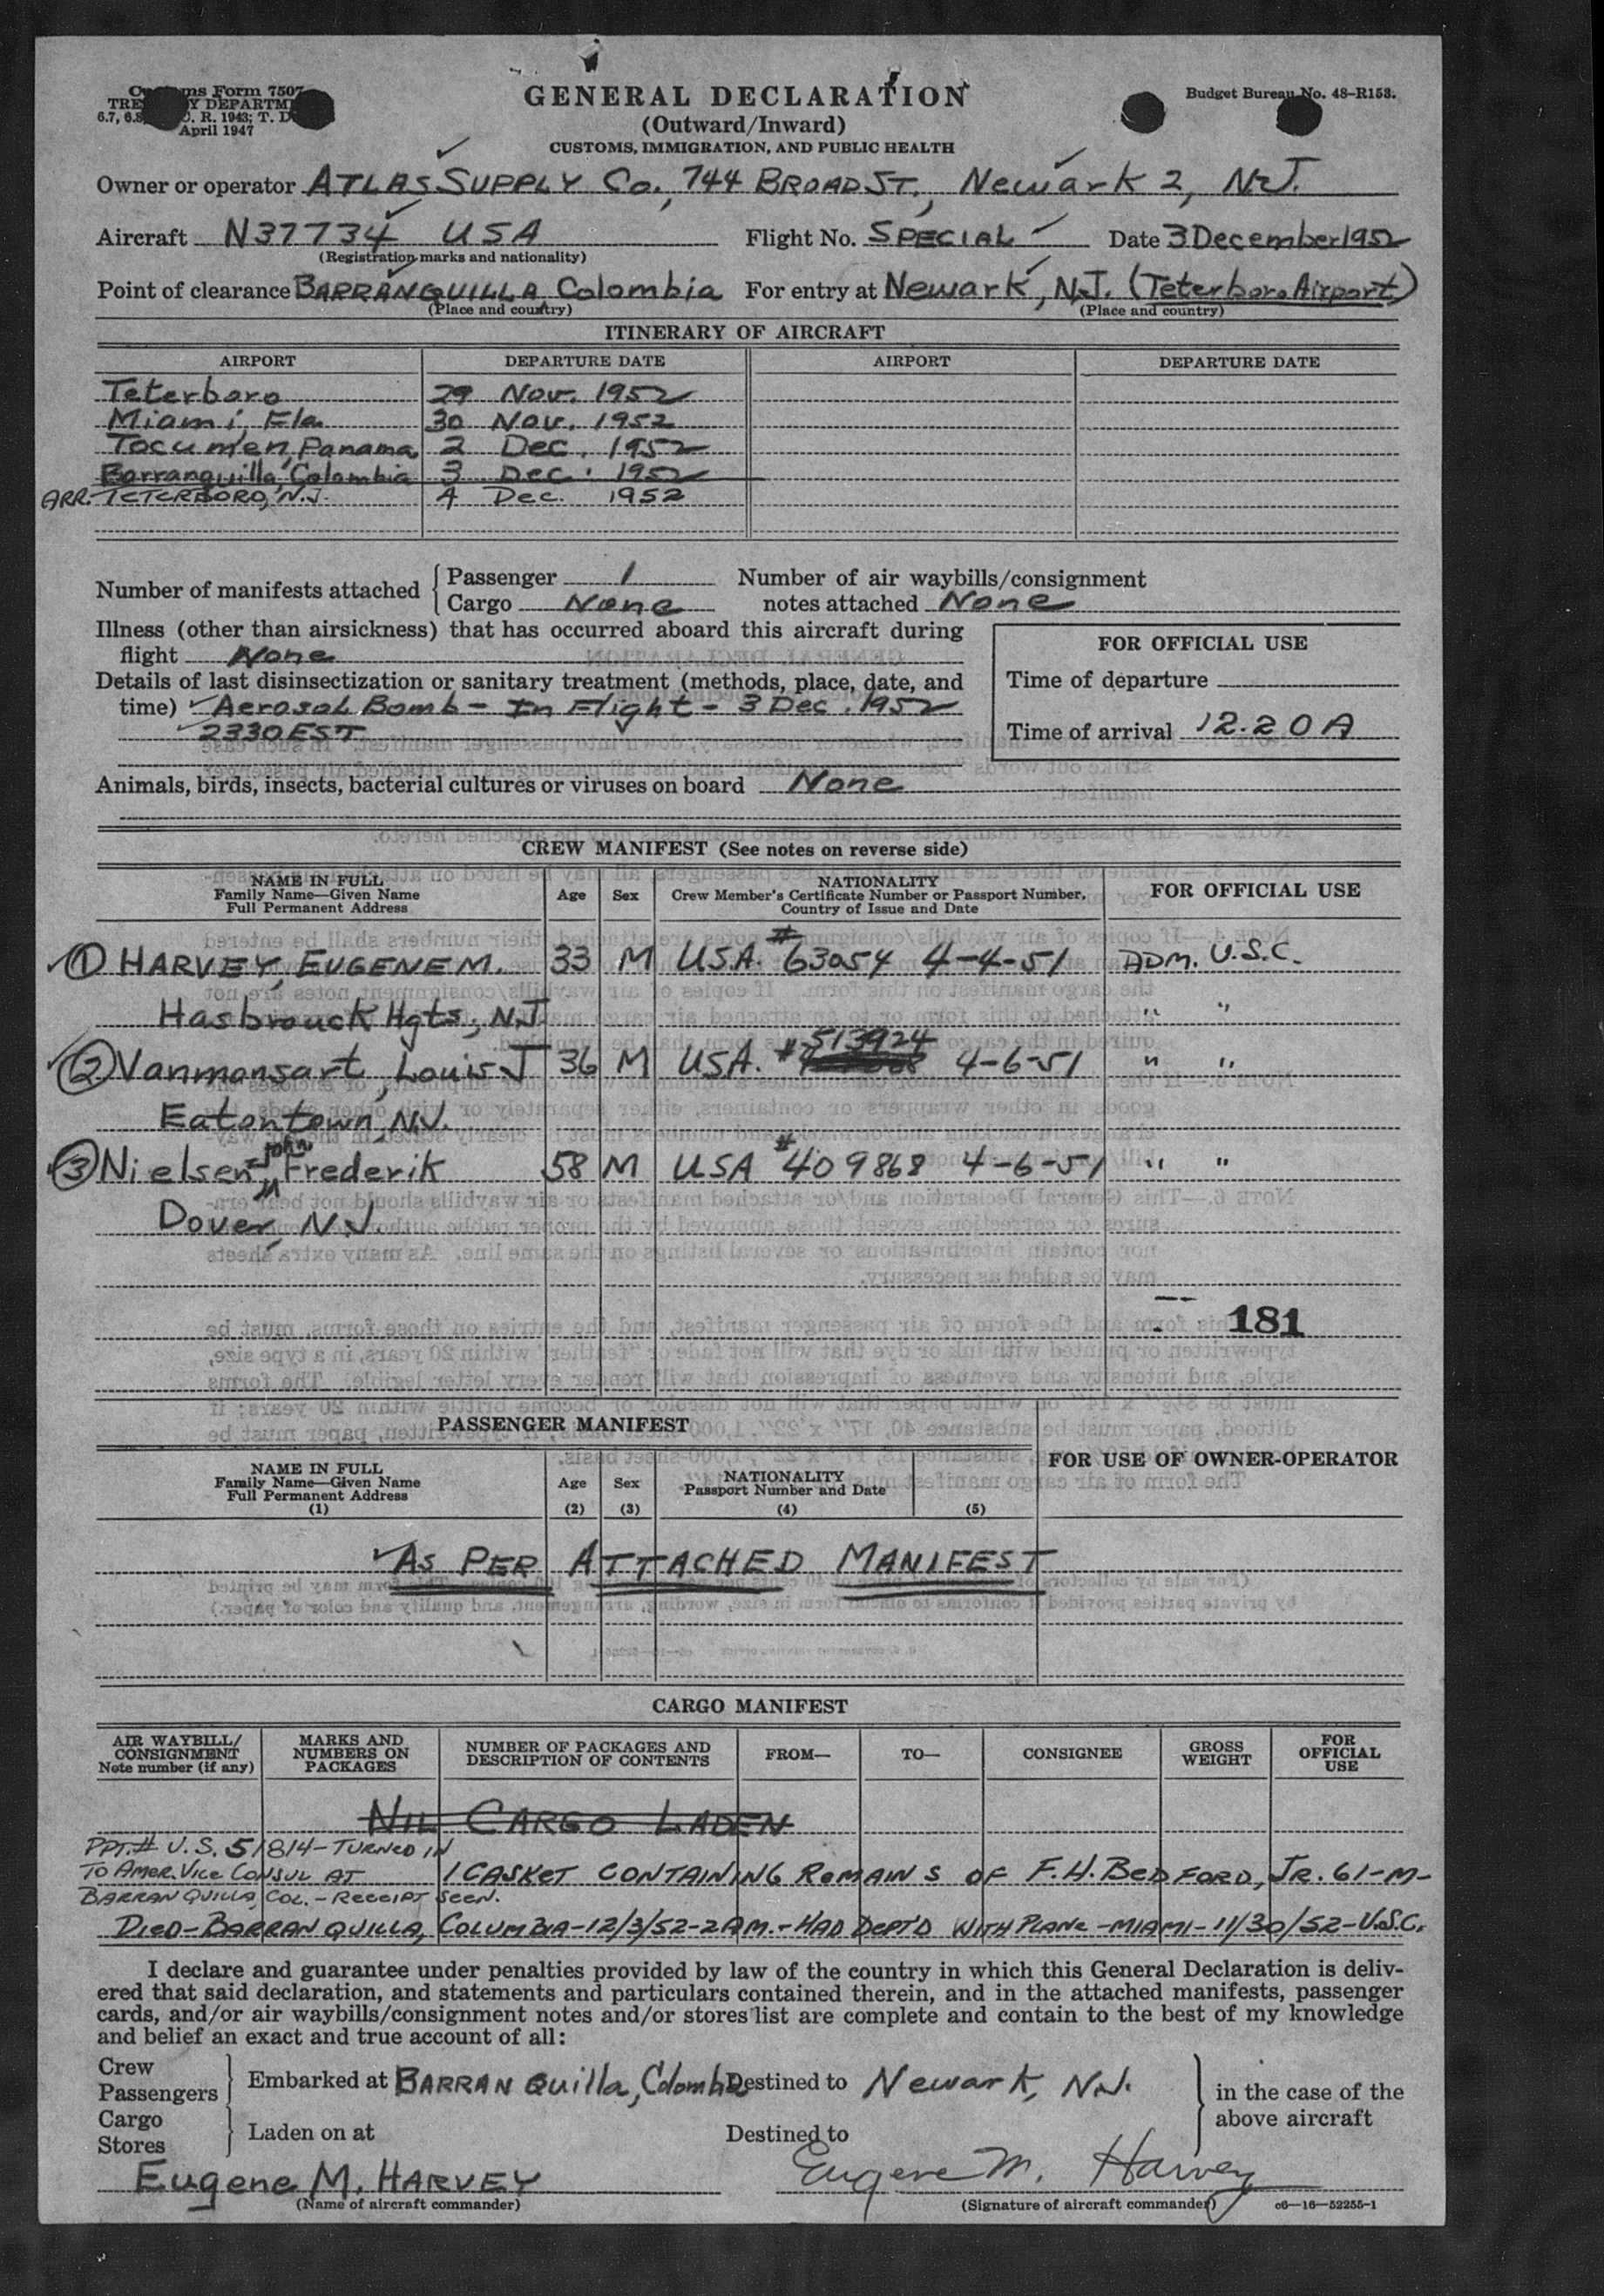 Customs Form 7507
TREASURY DEPARTMENT
6.7, 6.8, C. R. 1943; T. D.
April 1947
Budget Bureau No. 48–R158.
GENERAL DECLARATION
(Outward/Inward)
CUSTOMS, IMMIGRATION, AND PUBLIC HEALTH
Owner or operator ATLAS SUPPLY Co., 744 BROAD ST., Newark 2, N.J.
Aircraft N37734 USA Flight No. SPECIAL Date 3 December 1952
(Registration marks and nationality)
Point of clearance BARRANQUILLA, Colombia For entry at Newark, N.J. (Teterboro Airport)
(Place and country) (Place and country)
ITINERARY OF AIRCRAFT
AIRPORT DEPARTURE DATE AIRPORT DEPARTURE DATE
Teterboro 29 Nov. 1952
Miami, Fla. 30 Nov. 1952
Tocumen, Panama 2 Dec. 1952
Barranquilla, Colombia 3 Dec. 1952
ARR. TETERBORO, N.J. 4 Dec. 1952
Number of manifests attached { Passenger 1 Number of air waybills/consignment
Cargo None notes attached None
Illness (other than airsickness) that has occurred aboard this aircraft during
flight None
Details of last disinsectization or sanitary treatment (methods, place, date, and
time) Aerosol Bomb - In Flight - 3 Dec. 1952
2330 EST
FOR OFFICIAL USE
Time of departure
Time of arrival 12.20 A
Animals, birds, insects, bacterial cultures or viruses on board None
CREW MANIFEST (See notes on reverse side)
NAME IN FULL
Family Name—Given Name
Full Permanent Address
Age Sex
NATIONALITY
Crew Member's Certificate Number or Passport Number,
Country of Issue and Date
FOR OFFICIAL USE
① HARVEY, EUGENE M. 33 M USA. #63054 4-4-51 ADM. U.S.C.
Hasbrouck Hgts, N.J. " "
② Vanmonsart, Louis J 36 M USA. #513924 4-6-51 " "
Eatontown, N.J.
③ Nielsen, John Frederik 58 M USA #409868 4-6-51 " "
Dover, N.J.
181
PASSENGER MANIFEST
NAME IN FULL
Family Name—Given Name
Full Permanent Address
(1)
Age
(2)
Sex
(3)
NATIONALITY
Passport Number and Date
(4) (5)
FOR USE OF OWNER-OPERATOR
AS PER ATTACHED MANIFEST
CARGO MANIFEST
AIR WAYBILL/
CONSIGNMENT
Note number (if any)
MARKS AND
NUMBERS ON
PACKAGES
NUMBER OF PACKAGES AND
DESCRIPTION OF CONTENTS
FROM— TO— CONSIGNEE
GROSS
WEIGHT
FOR
OFFICIAL
USE
NIL CARGO LADEN
PPT. # U.S. 51814 - TURNED IN
TO AMER. VICE CONSUL AT 1 CASKET CONTAINING REMAINS OF F.H. BEDFORD, JR. 61-M-
BARRANQUILLA, COL. - RECEIPT SEEN.
DIED - BARRANQUILLA, COLUMBIA - 12/3/52 - 2AM. - HAD DEPT'D WITH PLANE - MIAMI - 11/30/52 - U.S.C.
I declare and guarantee under penalties provided by law of the country in which this General Declaration is deliv-
ered that said declaration, and statements and particulars contained therein, and in the attached manifests, passenger
cards, and/or air waybills/consignment notes and/or stores list are complete and contain to the best of my knowledge
and belief an exact and true account of all:
Crew
Passengers } Embarked at BARRANQuilla, Colombia Destined to Newark, N.J. } in the case of the
above aircraft
Cargo
Stores } Laden on at Destined to
Eugene M. HARVEY Eugene M. Harvey
(Name of aircraft commander) (Signature of aircraft commander) c6—16—52255-1